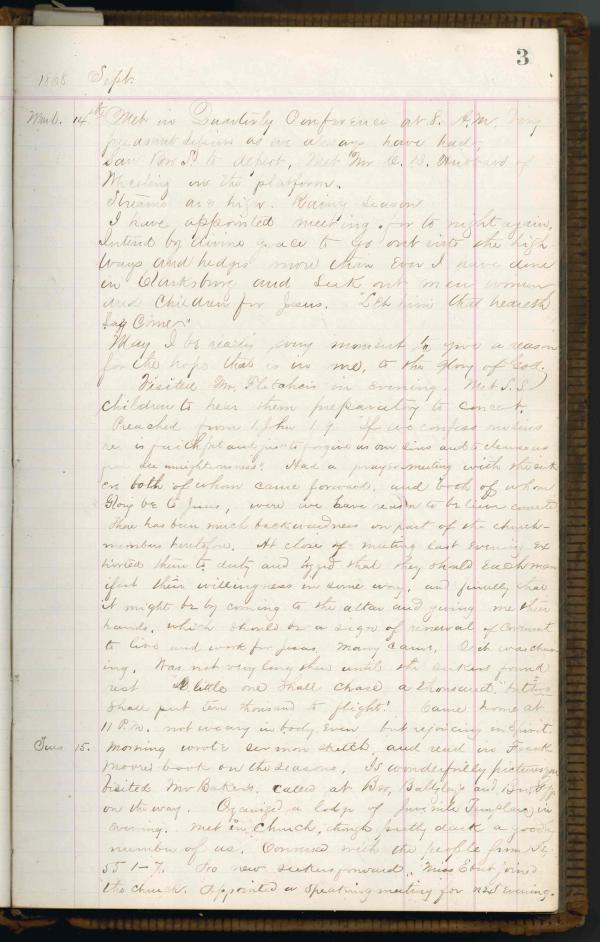 3
1868 Sept.
14th Met in Quarterly Conference at 8. A.M. Very
pleasant as we always have had.
Saw Bro. to depot, Met Mr C. B. Hubbard of
Wheeling on the platform.
Streams are high. Rainy season
I have appointed meeting for to night again,
Intend by divine grace to go out into the high
ways and hedges more than Ever I have done
in Clarksburg and seek out men women
and children for Jesus. "Let him that heareth
Say Come."
May I be ready every moment to give a reason
for the hope that is in me, to the glory of God.
Visited Mr. Fletchers in evening. Met S.S.
children to hear them preparatory to concert.
Preached from 1 John 1.9. If we confess our sins
he is faithful and just to forgive us our sins and to cleanse us
from all unrighteousness". Had a prayer meeting with the seek
ers both of whom came forward, and both of whom
Glory be to Jesus, were we have reason to believe converted
There has been much backwardness on part of the church-
members heretofore. At close of meeting last evening Ex
horted them to duty and urged that they should Each man
ifest their willingness in some way, and finally that
it might be by coming to the altar and giving me their
hands, which should be a sign of renewal of Covenant
to live and work for Jesus. Many came. It was cheer
ing. Was not very long then until the seekers found
rest "A little one shall chase a thousand" but two
shall put ten thousand to flight! Came home at
11 P.M. not weary in body, Even but rejoicing in Spirit.
Tues 15. Morning wrote sermon sketch, and read in
book on the seasons. Is wonderfully picturesque
Visited Mr Bakers. called at Bro. and Bro.
on the way. Organized a lodge of Juvenile Templars in
evening. Met in Church, though pretty dark a goodly
number of us. Conversed with the people from Is.
55 1-7. No new seekers forward. Miss joined
the church. Appointed a Speaking meeting for next Evening.